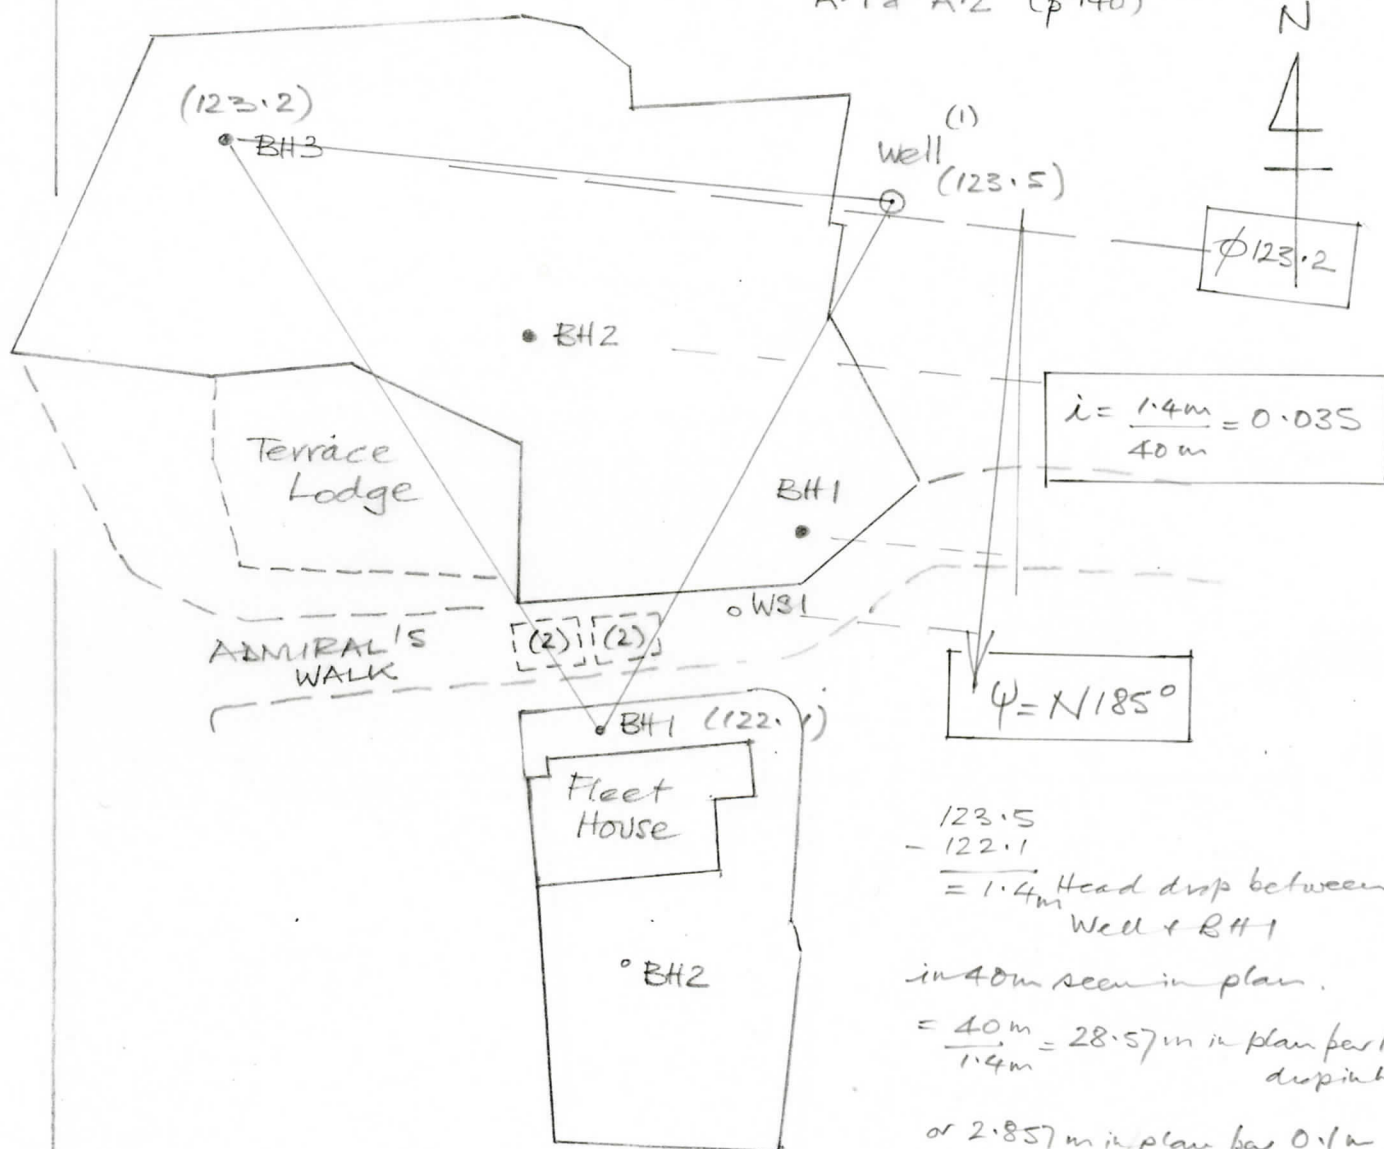 A.1 & A.2 (p 140)
N
(123.2)
BH3
(1)
Well
(123.5)
ϕ123.2
BH2
i = 1.4m / 40m = 0.035
Terrace
Lodge
BH1
WS1
(2) (2)
ADMIRAL'S
WALK
ψ=N185°
BH1 (122.1)
Fleet
House
123.5
- 122.1
= 1.4m Head drop between
Well & BH1
BH2
in 40m seen in plan.
= 40m / 1.4m = 28.57m in plan per 1
drop in h
or 2.857m in plan per 0.1m